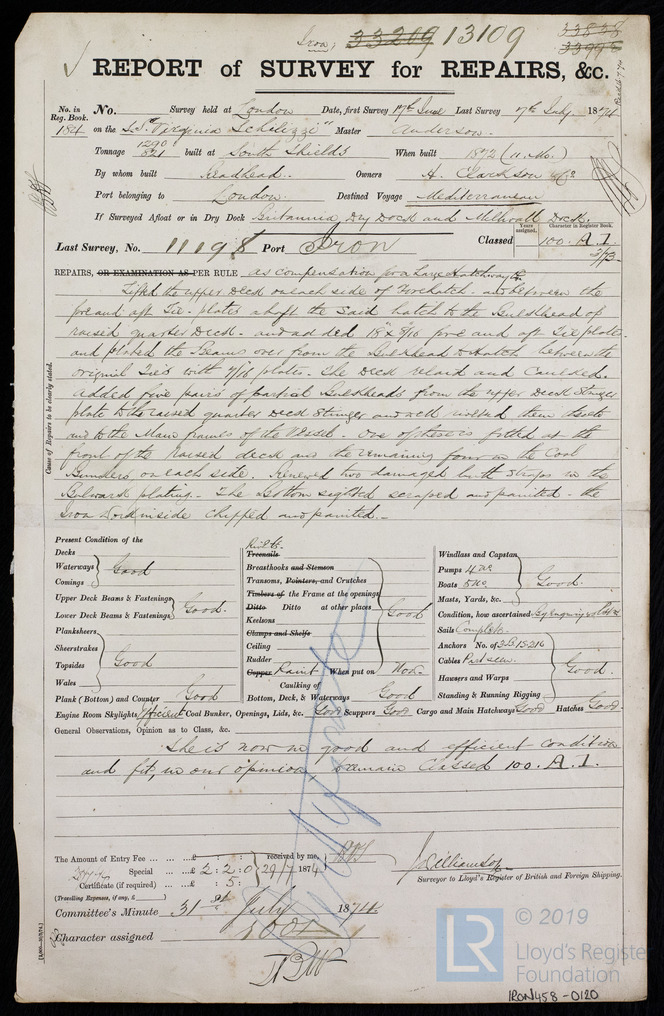 Iron, 33209 13109
33838
33995
REPORT of SURVEY for REPAIRS, &c.
No. in Reg. Book. 184
No. Survey held at London Date, first Survey 17th June Last Survey 17th July 1874
on the S.S. "Virginia Schilizzi" Master Anderson
Tonnage 1290 821 built at South Shields When built 1872 (11 Mo.)
By whom built Readhead Owners H. Clarkson & Co
Port belonging to London Destined Voyage Mediterranean
If Surveyed Afloat or in Dry Dock Britannia Dry Dock and Millwall Dock.
Last Survey, No. 11198 Port Iron Classed Years assigned, 100 Character in Register Book. A.1.
REPAIRS, OR EXAMINATION AS PER RULE, as compensation for a Large Hatchway &c
Lifted the upper Deck on each side of Forehatch and between the
fore and aft Tie-plates abaft the said hatch to the Bulkhead of
raised quarter Deck - and added 18" x 7/16 fore and aft Tie plates
and plated the Beams over from the Bulkhead to hatch between the
original Ties with 7/16 plates. The Deck relaid and Caulked.
Added five pairs of partial Bulkheads from the upper Deck Stringer
plate to the raised quarter Deck Stringer and well riveted them thereto
and to the Main frames of the Vessel. One of these is fitted at the
front of the raised deck and the remaining four in the Coal
Bunkers on each side. Renewed two damaged butt Straps in the
Bulwark plating. The Bottom sighted scraped and painted - the
Iron Work inside chipped and painted.
Cause of Repairs to be clearly stated.
Present Condition of the
Decks
Waterways
Comings
Good
Upper Deck Beams & Fastenings
Lower Deck Beams & Fastenings
Good.
Planksheers
Sheerstrakes
Topsides
Wales
Good
Plank (Bottom) and Counter Good
Rivets
Treenails
Breasthooks and Stemson
Transoms, Pointers, and Crutches
Timbers of the Frame at the openings
Ditto Ditto at other places
Keelsons
Clamps and Shelfs
Ceiling
Rudder
Good
Copper Paint When put on Now.
Caulking of
Bottom, Deck, & Waterways Good
Windlass and Capstan
Pumps 4 no
Boats 5 no
Masts, Yards, &c.
Good.
Condition, how ascertained
Sails Complete
Anchors No. of
Cables Part seen.
Hawsers and Warps
Standing & Running Rigging
Good.
Engine Room Skylights Efficient Coal Bunker, Openings, Lids, &c. Good Scuppers Good Cargo and Main Hatchways Good Hatches Good.
General Observations, Opinion as to Class, &c.
She is now in good and efficient condition
and fit, in our opinion, to remain Classed 100.A.1.
The Amount of Entry Fee ... £ : :
Special ... £ 2 : 2 : 0
Certificate (if required) ... £ : 5 :
(Travelling Expenses, if any, £ )
received by me,
29/7 1874
J Williamson
Surveyor to Lloyd's Register of British and Foreign Shipping.
Committee's Minute 31st July 1874
Character assigned 100 A 1
© 2019
LR
Lloyd's Register
Foundation
IRON458-0120